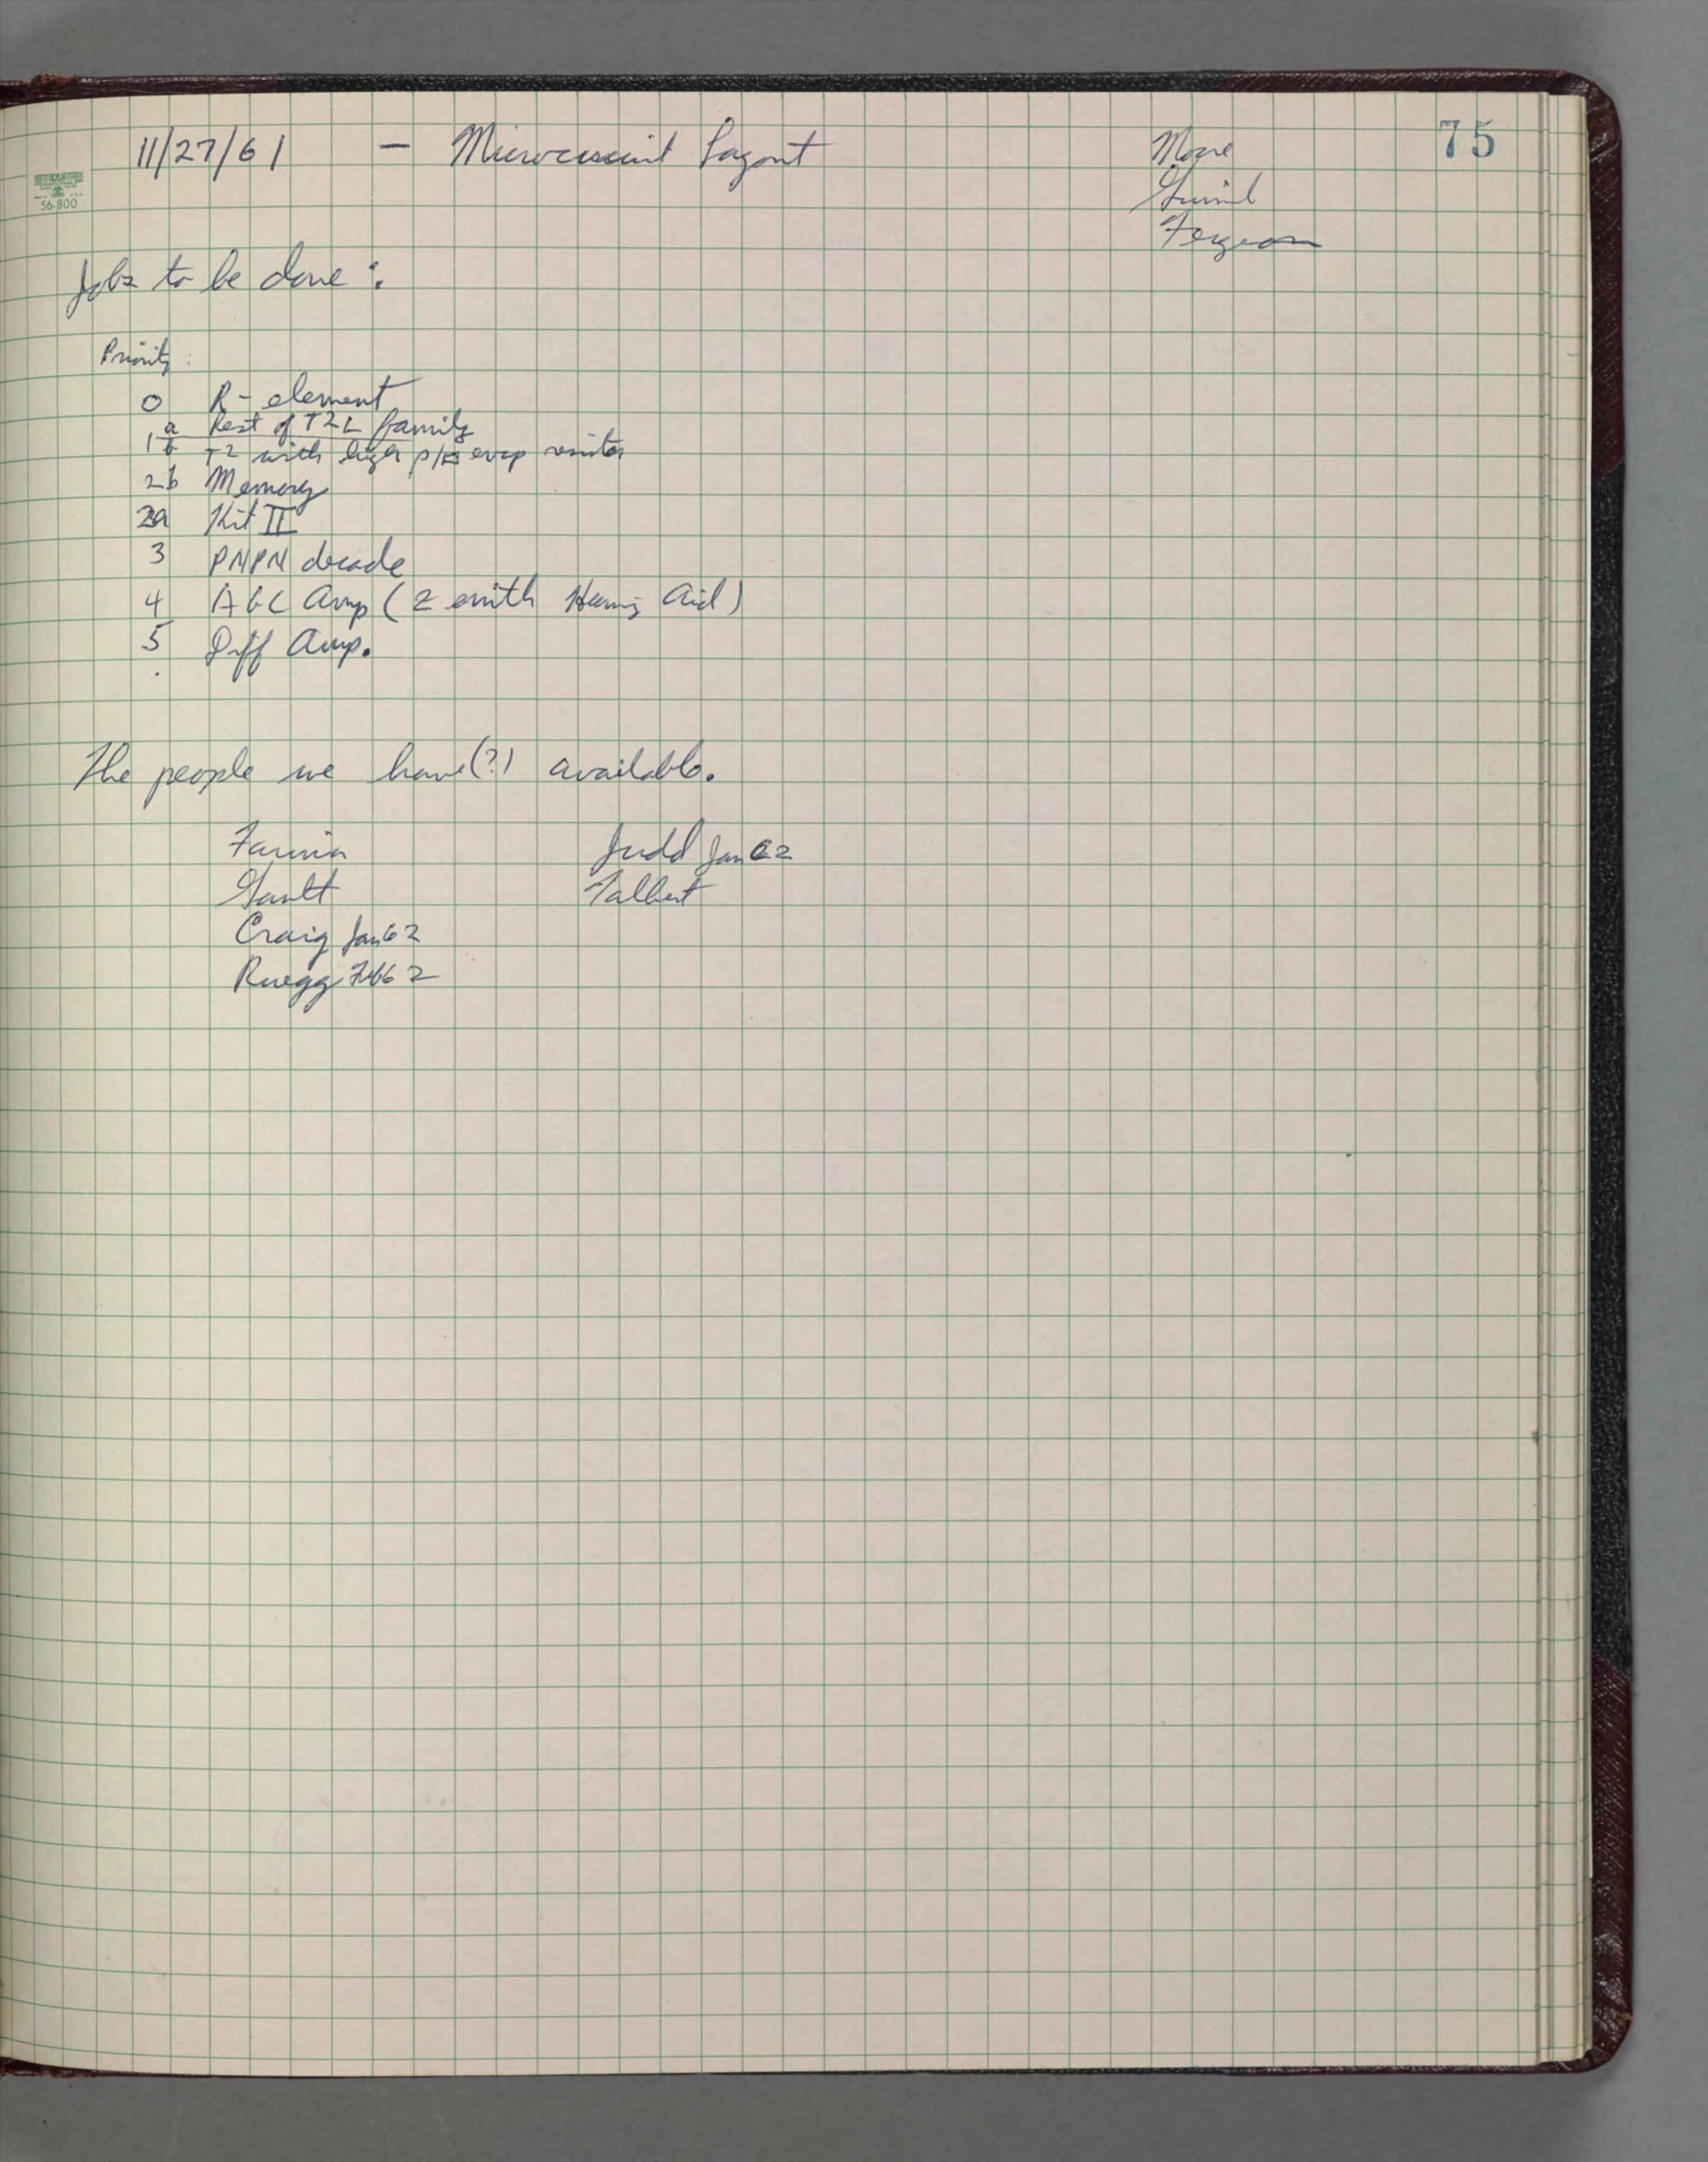 75
11/27/61 — Microcircuit Layout
Moore
Grinich
Ferguson
NATIONAL
56-800
Jobs to be done:
Priority:
0 R-element
1a Rest of T2L family
b T2 with high ρ/□ evap resistor
2b Memory
2a Kit II
3 PNPN decade
4 AGC Amp (Zenith Hearing Aid)
5 Diff Amp.
The people we have(?) available.
Farina Judd Jan 62
Gault Talbert
Craig Jan 62
Ruegg Feb 62